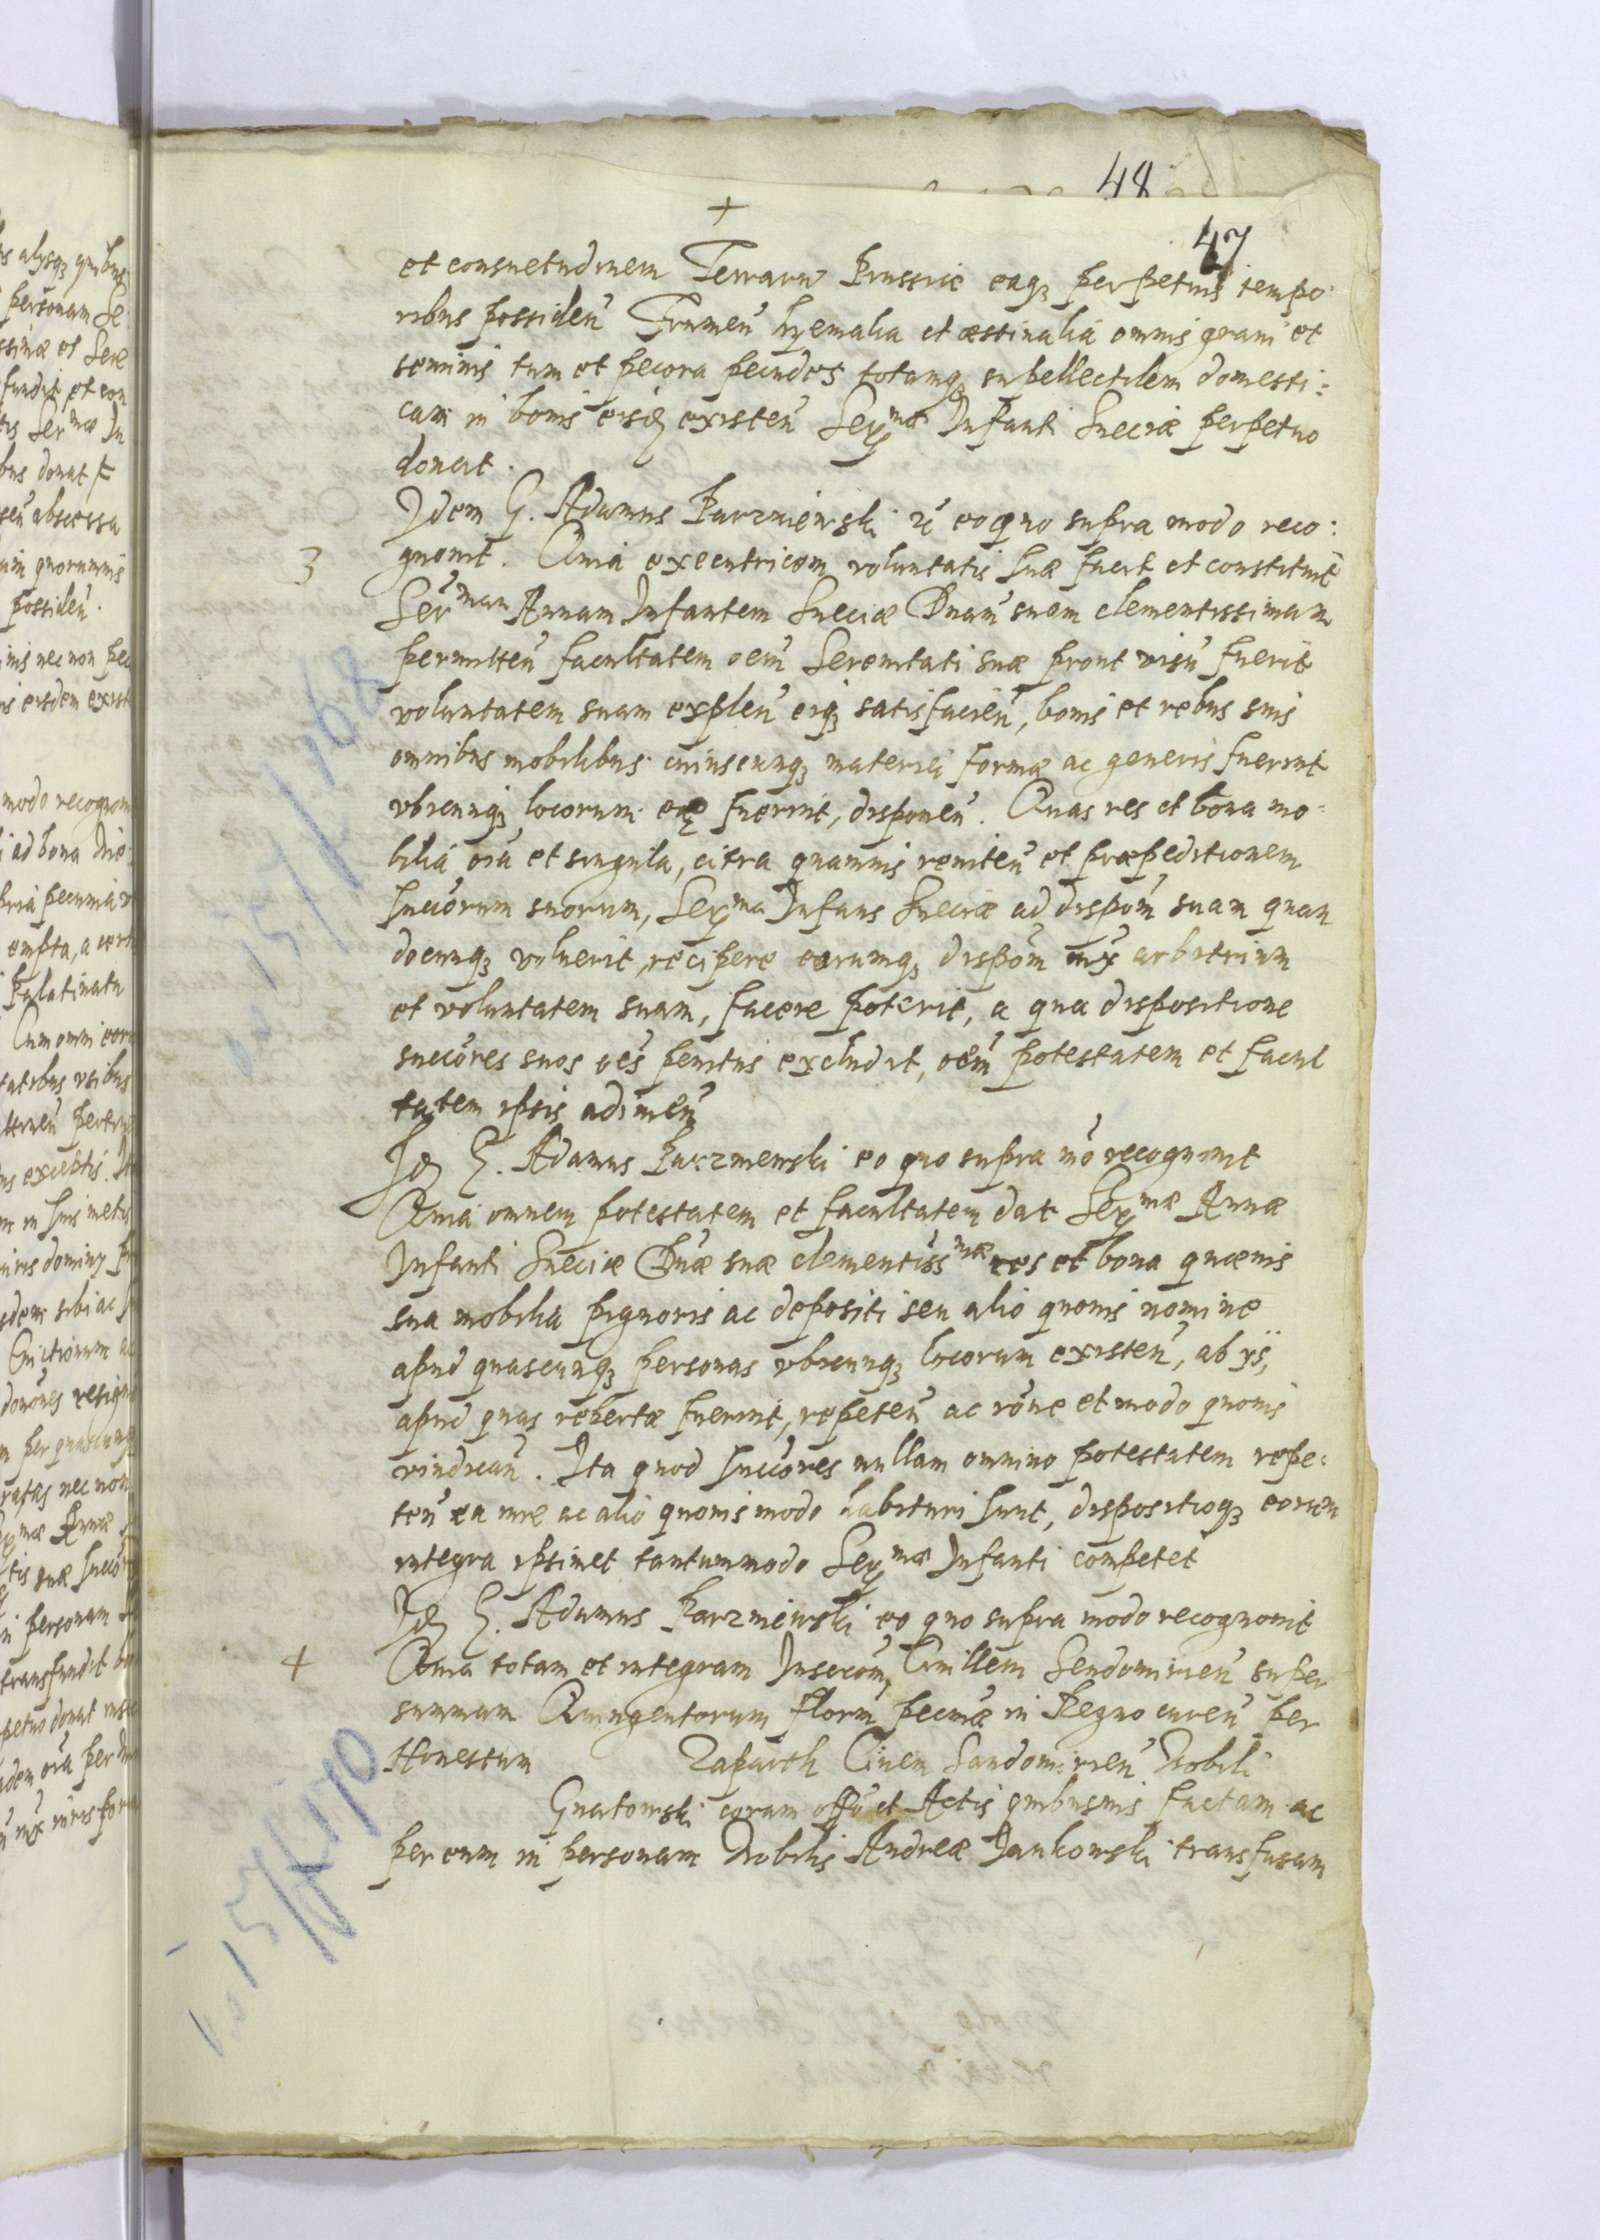 48
+
47
et consuetudinem Terraru Prussiæ eaq3 perpetuis tempo-
ribus possideñ Frumeñ hyemalia et æstiualia omnis grani et
seminis tum et pecora pecudes totamq3 supellectilem domesti:
cam in bonis eisđ existeñ Serᵐᵃᵉ Infanti Sueciæ perpetuo
donat.
Idem G. Adamus Parzniewski eo quo supra modo reco:
3
gnouit. Quia executricem voluntatis suæ fecit et constituit
Serᵐᵃᵐ Annam Infantem Sueciæ Dnam suam clementissimam
permitteñ facultatem oem Serenitati suæ prout visu fuerit
voluntatem suam expleñ eiq3 satisfacieñ, bonis et rebus suis
omnibus mobilibus cuiuscunq3 materiei formæ ac generis fuerint
vbicunq3 locorum ex fuerint, disponeñ. Quas res et bona mo-
bilia oia et singula, citra quamuis reniteñ et præpeditionem
succorum suorum, Serᵐᵃ Infans Sueciæ ad dispom suam quan
docunq3 voluerit, recipere earumq3 dispom iux arbitrium
et voluntatem suam, facere poterit, a qua dispositione
succores suos oes penitus excludit, oem potestatem et facul
tatem ipsis adimeñ
Iđ G. Adamus Parzniewski eo quo supra mo recognouit
Quia omnem potestatem et facultatem dat Serᵐᵃᵉ Annæ
Infanti Sueciæ Dnæ suæ clementissᵐᵃᵉ res et bona quæuis
sua mobilia pignoris ac depositi seu alio quouis nomine
apud quascunq3 personas vbicunq3 locorum existeñ, ab ijs,
apud quas repertæ fuerint, repeteñ ac rone et modo quouis
vindicañ. Ita quod succores nullam omnino potestatem repe:
teñ ea iure ac alio quouis modo habituri sunt, dispositioq3 eorum
integra ipsimet tantummodo Serᵐᵃᵉ Infanti competet
Iđ G. Adamus Parzniewski eo quo supra modo recognouit
4
Quia totam et integram Inscrom Ciuillem Sendomirieñ super
summam Quingentorum florñ pecuniæ in Regno cureñ per
Honestum Zaparth Ciuem Sandomirieñ Nobili
Gnatowski coram offo et Actis quibusuis factam ac
per eum in personam Nobilis Andreæ Jankowski transfusam